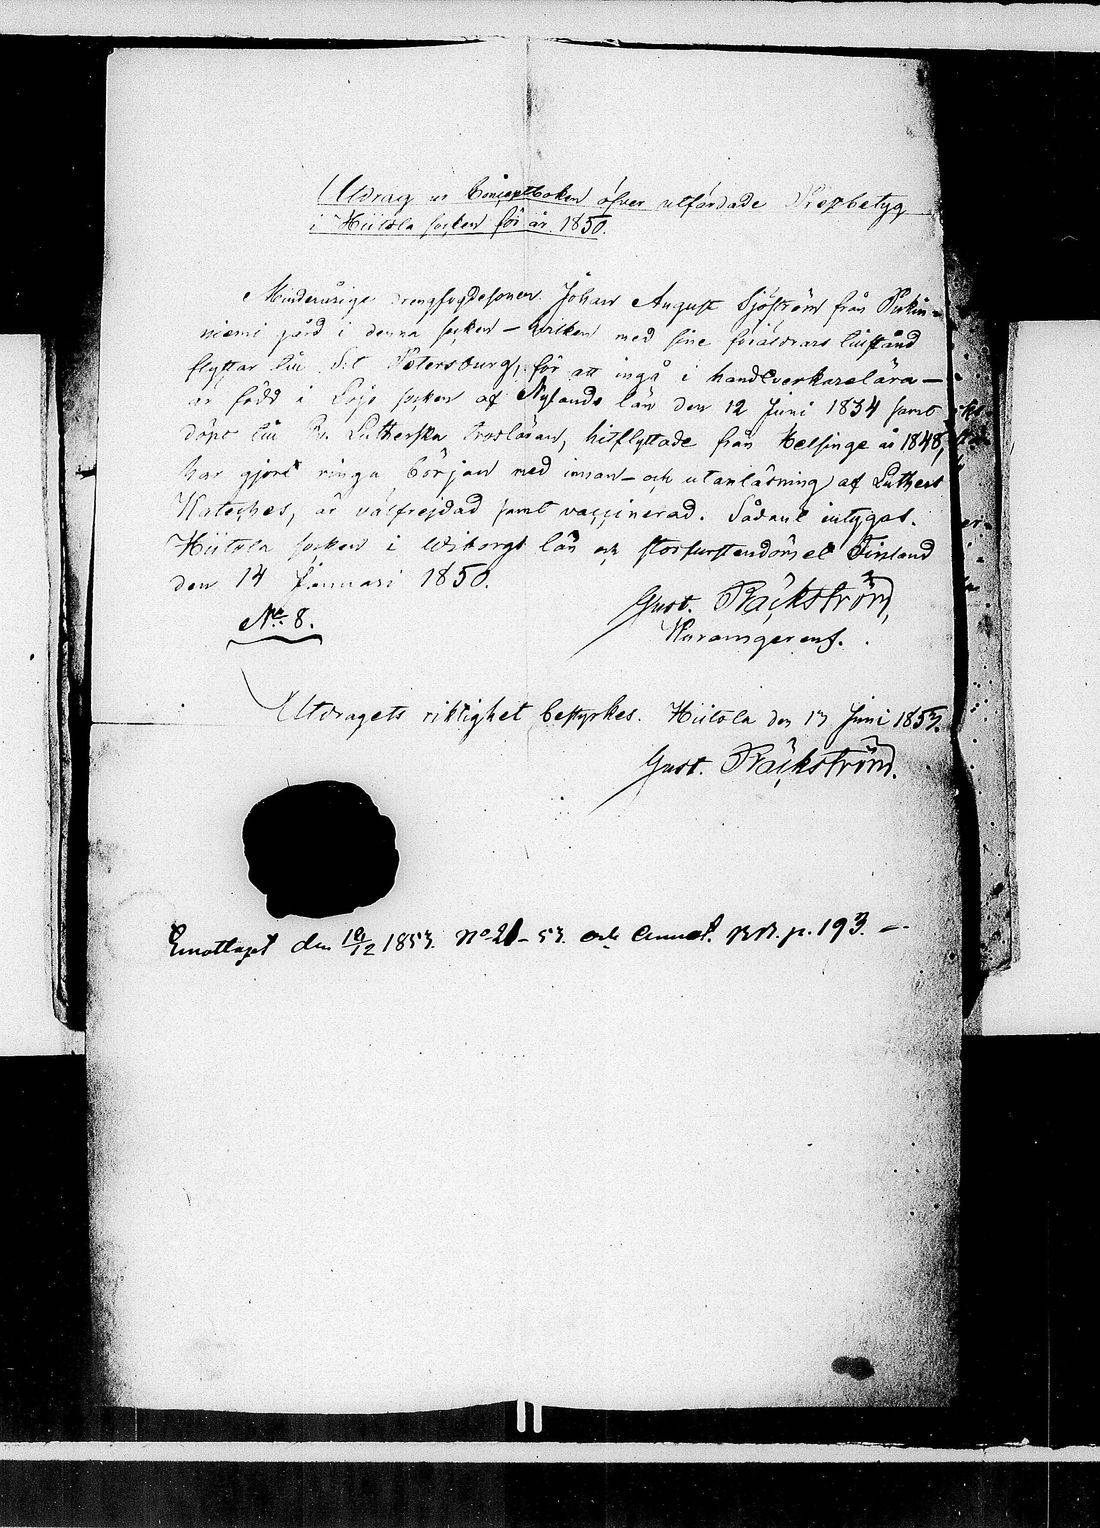 Utdrag ur Conceptboken öfver utfärdade Prestbetyg
i Hiitola socken för år 1850.
Minderårige drengfogdesonen Johan August Sjöström från Pukin-
niemi gård i denna socken – hvilken med sine föräldrars tillstånd
flyttar till S:t Petersburg, för att ingå i handtverkarelära –
är född i Lojo socken af Nylands län den 12 Juni 1834 samt
döpt till Ev. Lutherska trosläran, hitflyttade från Helsinge år 1848,
har gjort ringa början med innan- och utanläsning af Luthers
Kateches, är välfrejdad samt vaccinerad. Sådant intygas.
Hiitola socken i Wiborgs län och Storfurstendömet Finland
den 14 Januari 1850.
No 8.
Gust. Bäckström,
Utdragets riktighet bestyrkes. Hiitola den 13 Juni 1853.
Gust. Bäckström.
Emottaget den /12 1853. No 21-53. och p. 193.